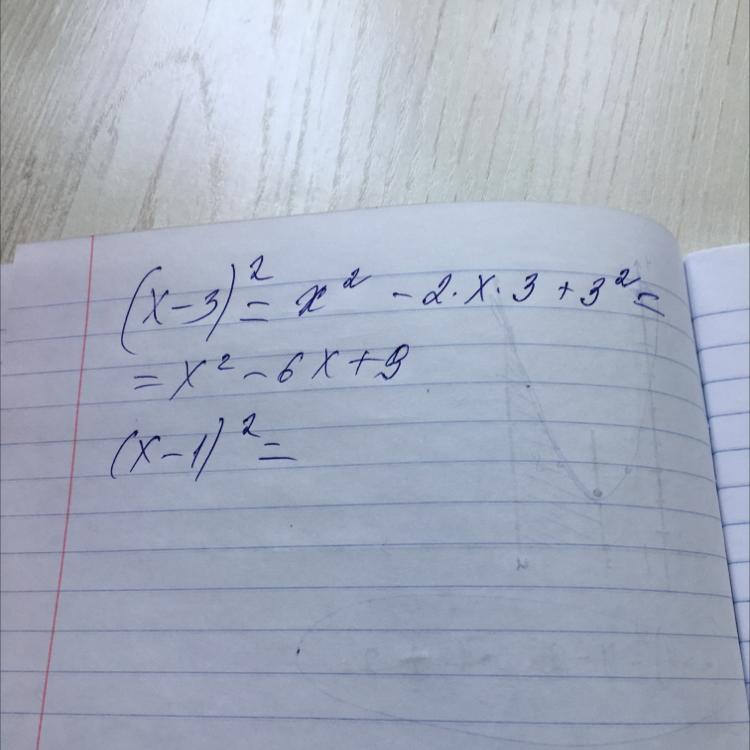 (x-3)² = x² - 2·x·3 + 3² =
= x² - 6x + 9
(x-1)² =